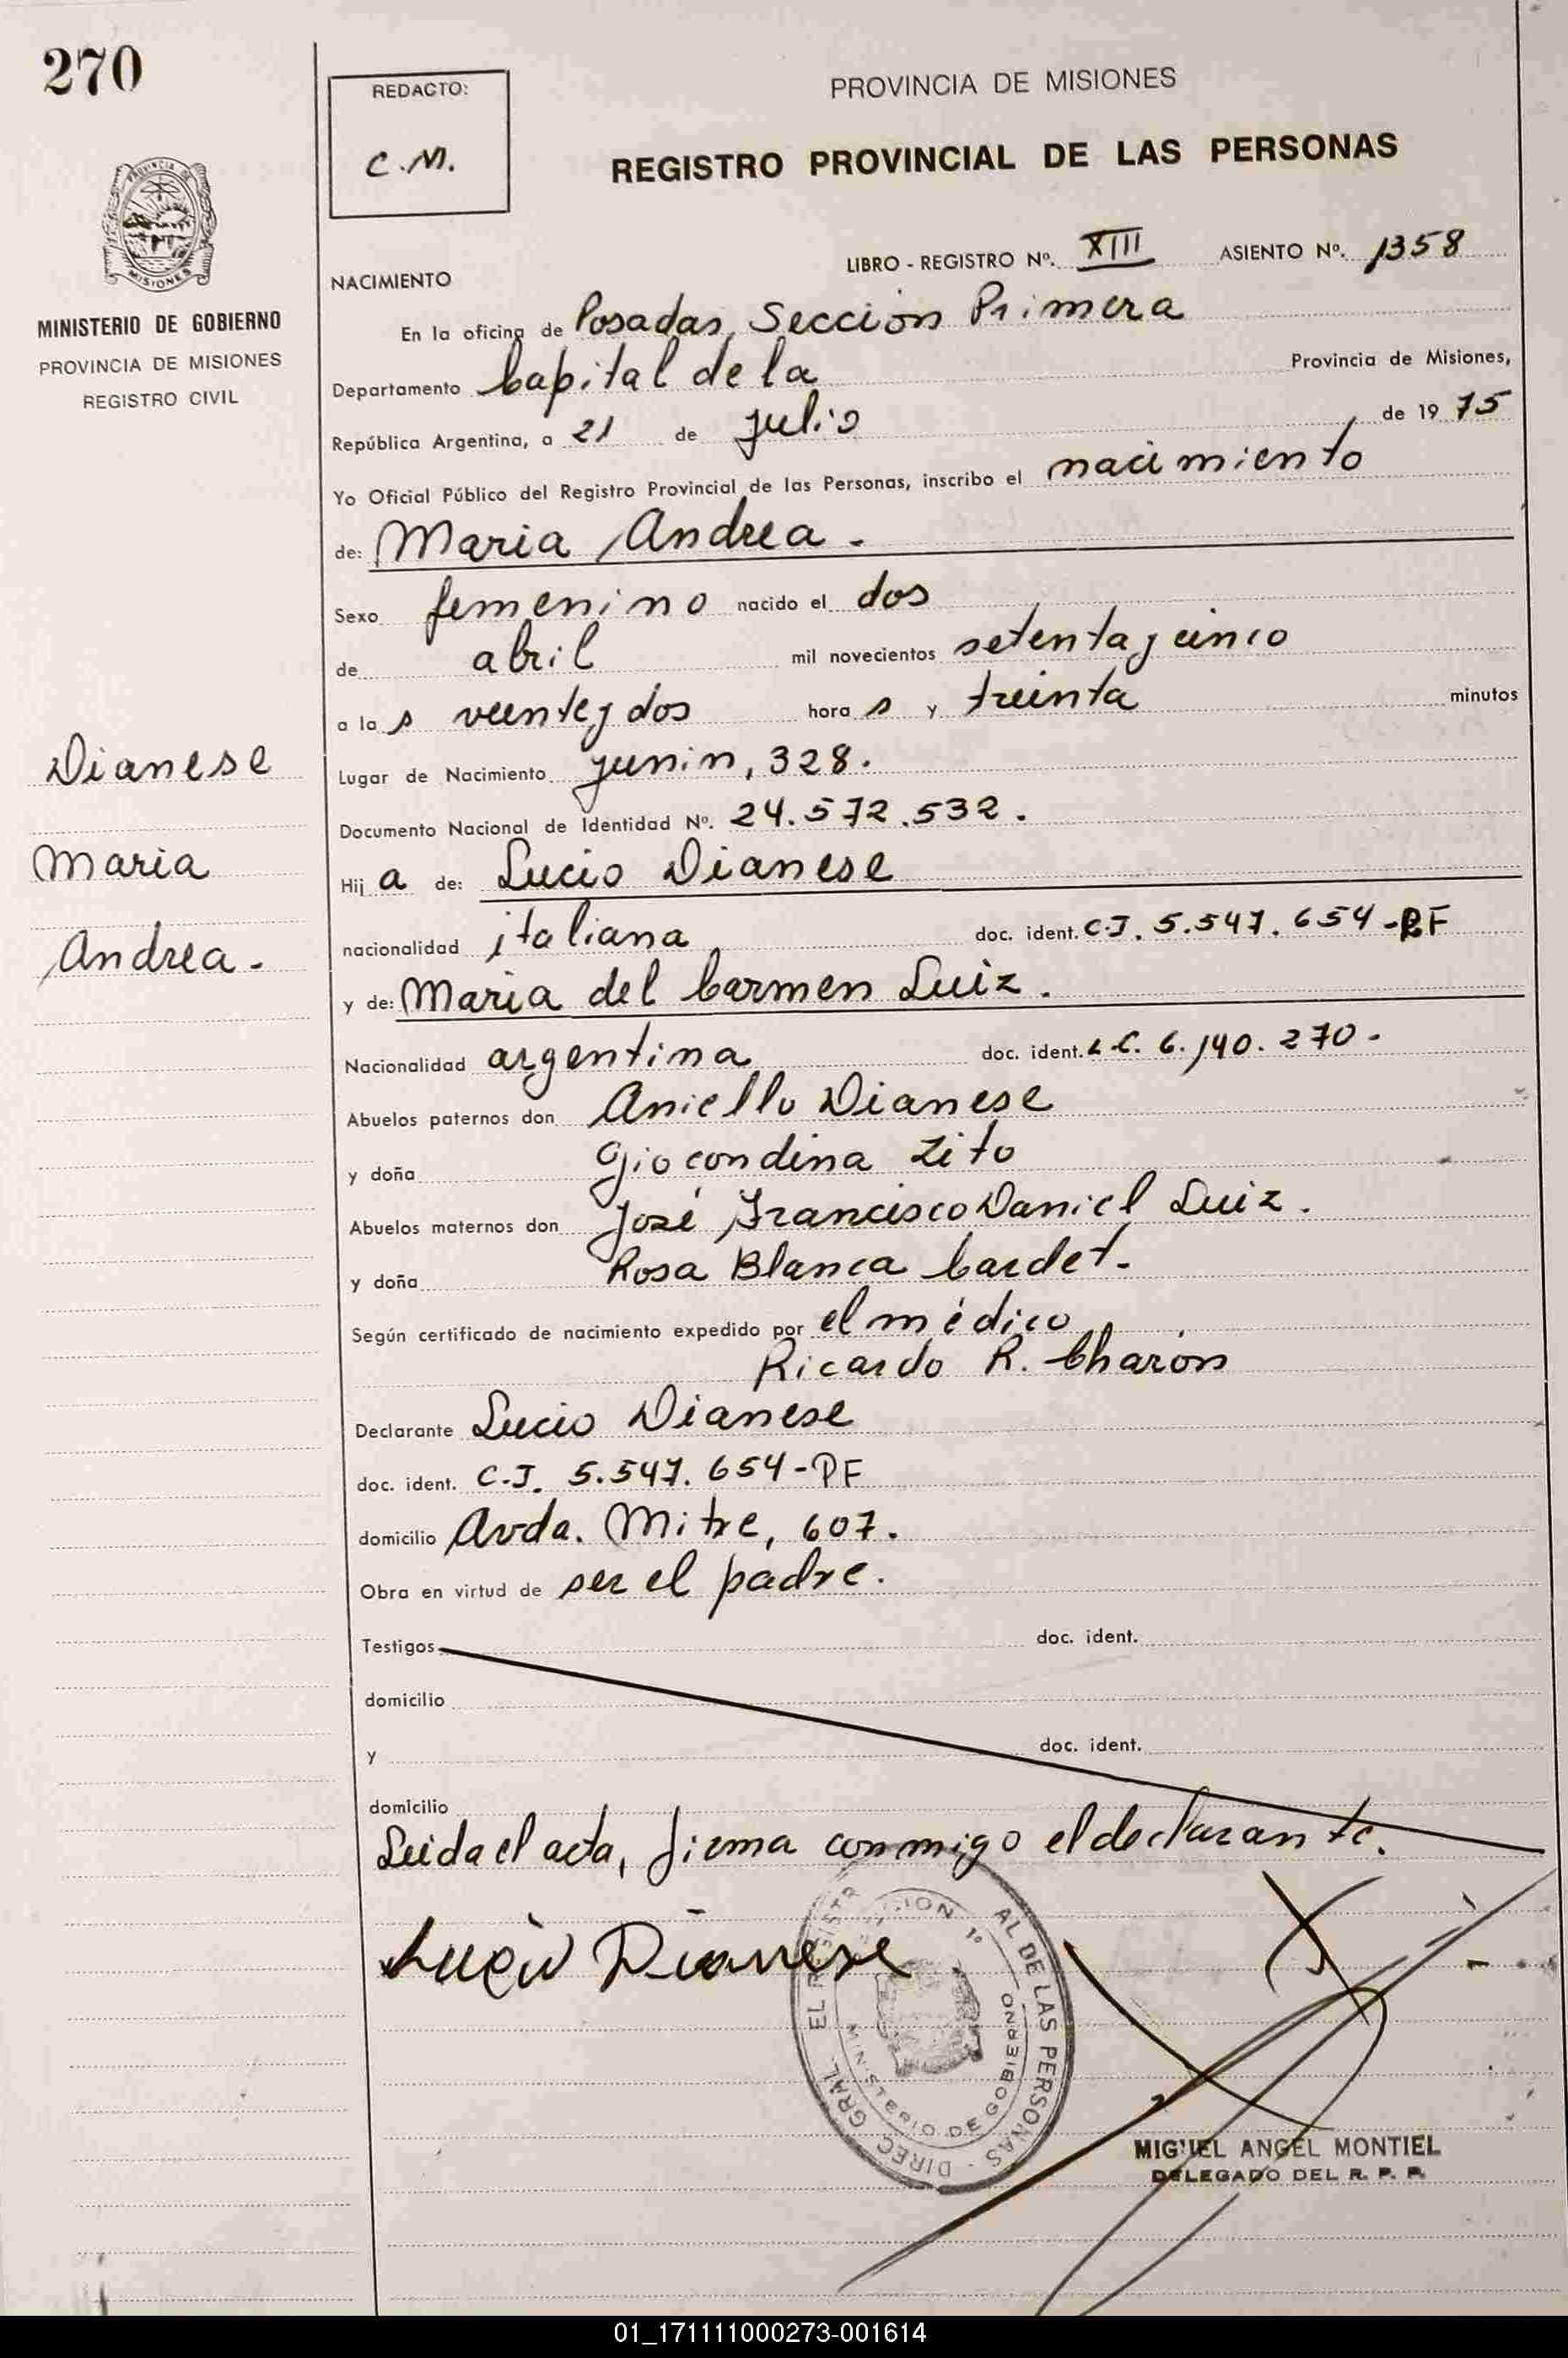 270
PROVINCIA DE MISIONES
MINISTERIO DE GOBIERNO
PROVINCIA DE MISIONES
REGISTRO CIVIL
Dianese
Maria
Andrea.
REDACTO:
C.M.
PROVINCIA DE MISIONES
REGISTRO PROVINCIAL DE LAS PERSONAS
LIBRO - REGISTRO Nº. XIII ASIENTO Nº. 1358
NACIMIENTO
En la oficina de Posadas, Sección Primera
Departamento Capital de la Provincia de Misiones,
República Argentina, a 21 de julio de 1975
Yo Oficial Público del Registro Provincial de las Personas, inscribo el nacimiento
de: Maria Andrea.
Sexo femenino nacido el dos
de abril mil novecientos setenta y cinco
a las veinte y dos horas y treinta minutos
Lugar de Nacimiento junin, 328.
Documento Nacional de Identidad Nº. 24.572.532.
Hija de: Lucio Dianese
nacionalidad italiana doc. ident. C.I. 5.547.654-PF
y de: Maria del Carmen Luiz.
Nacionalidad argentina doc. ident. L.C. 6.140.270.
Abuelos paternos don Aniello Dianese
y doña Giocondina Zito
Abuelos maternos don José Francisco Daniel Luiz.
y doña Rosa Blanca Cardet.
Según certificado de nacimiento expedido por el médico
Ricardo R. Charón
Declarante Lucio Dianese
doc. ident. C.I. 5.547.654-PF
domicilio Avda. Mitre, 607.
Obra en virtud de ser el padre.
Testigos doc. ident.
domicilio
y doc. ident.
domicilio
Leida el acta, firma conmigo el declarante.
Lucio Dianese
AL DE LAS PERSONAS - DIREC. GRAL
MINISTERIO DE GOBIERNO
MIGUEL ANGEL MONTIEL
DELEGADO DEL R. P. P.
01_171111000273-001614